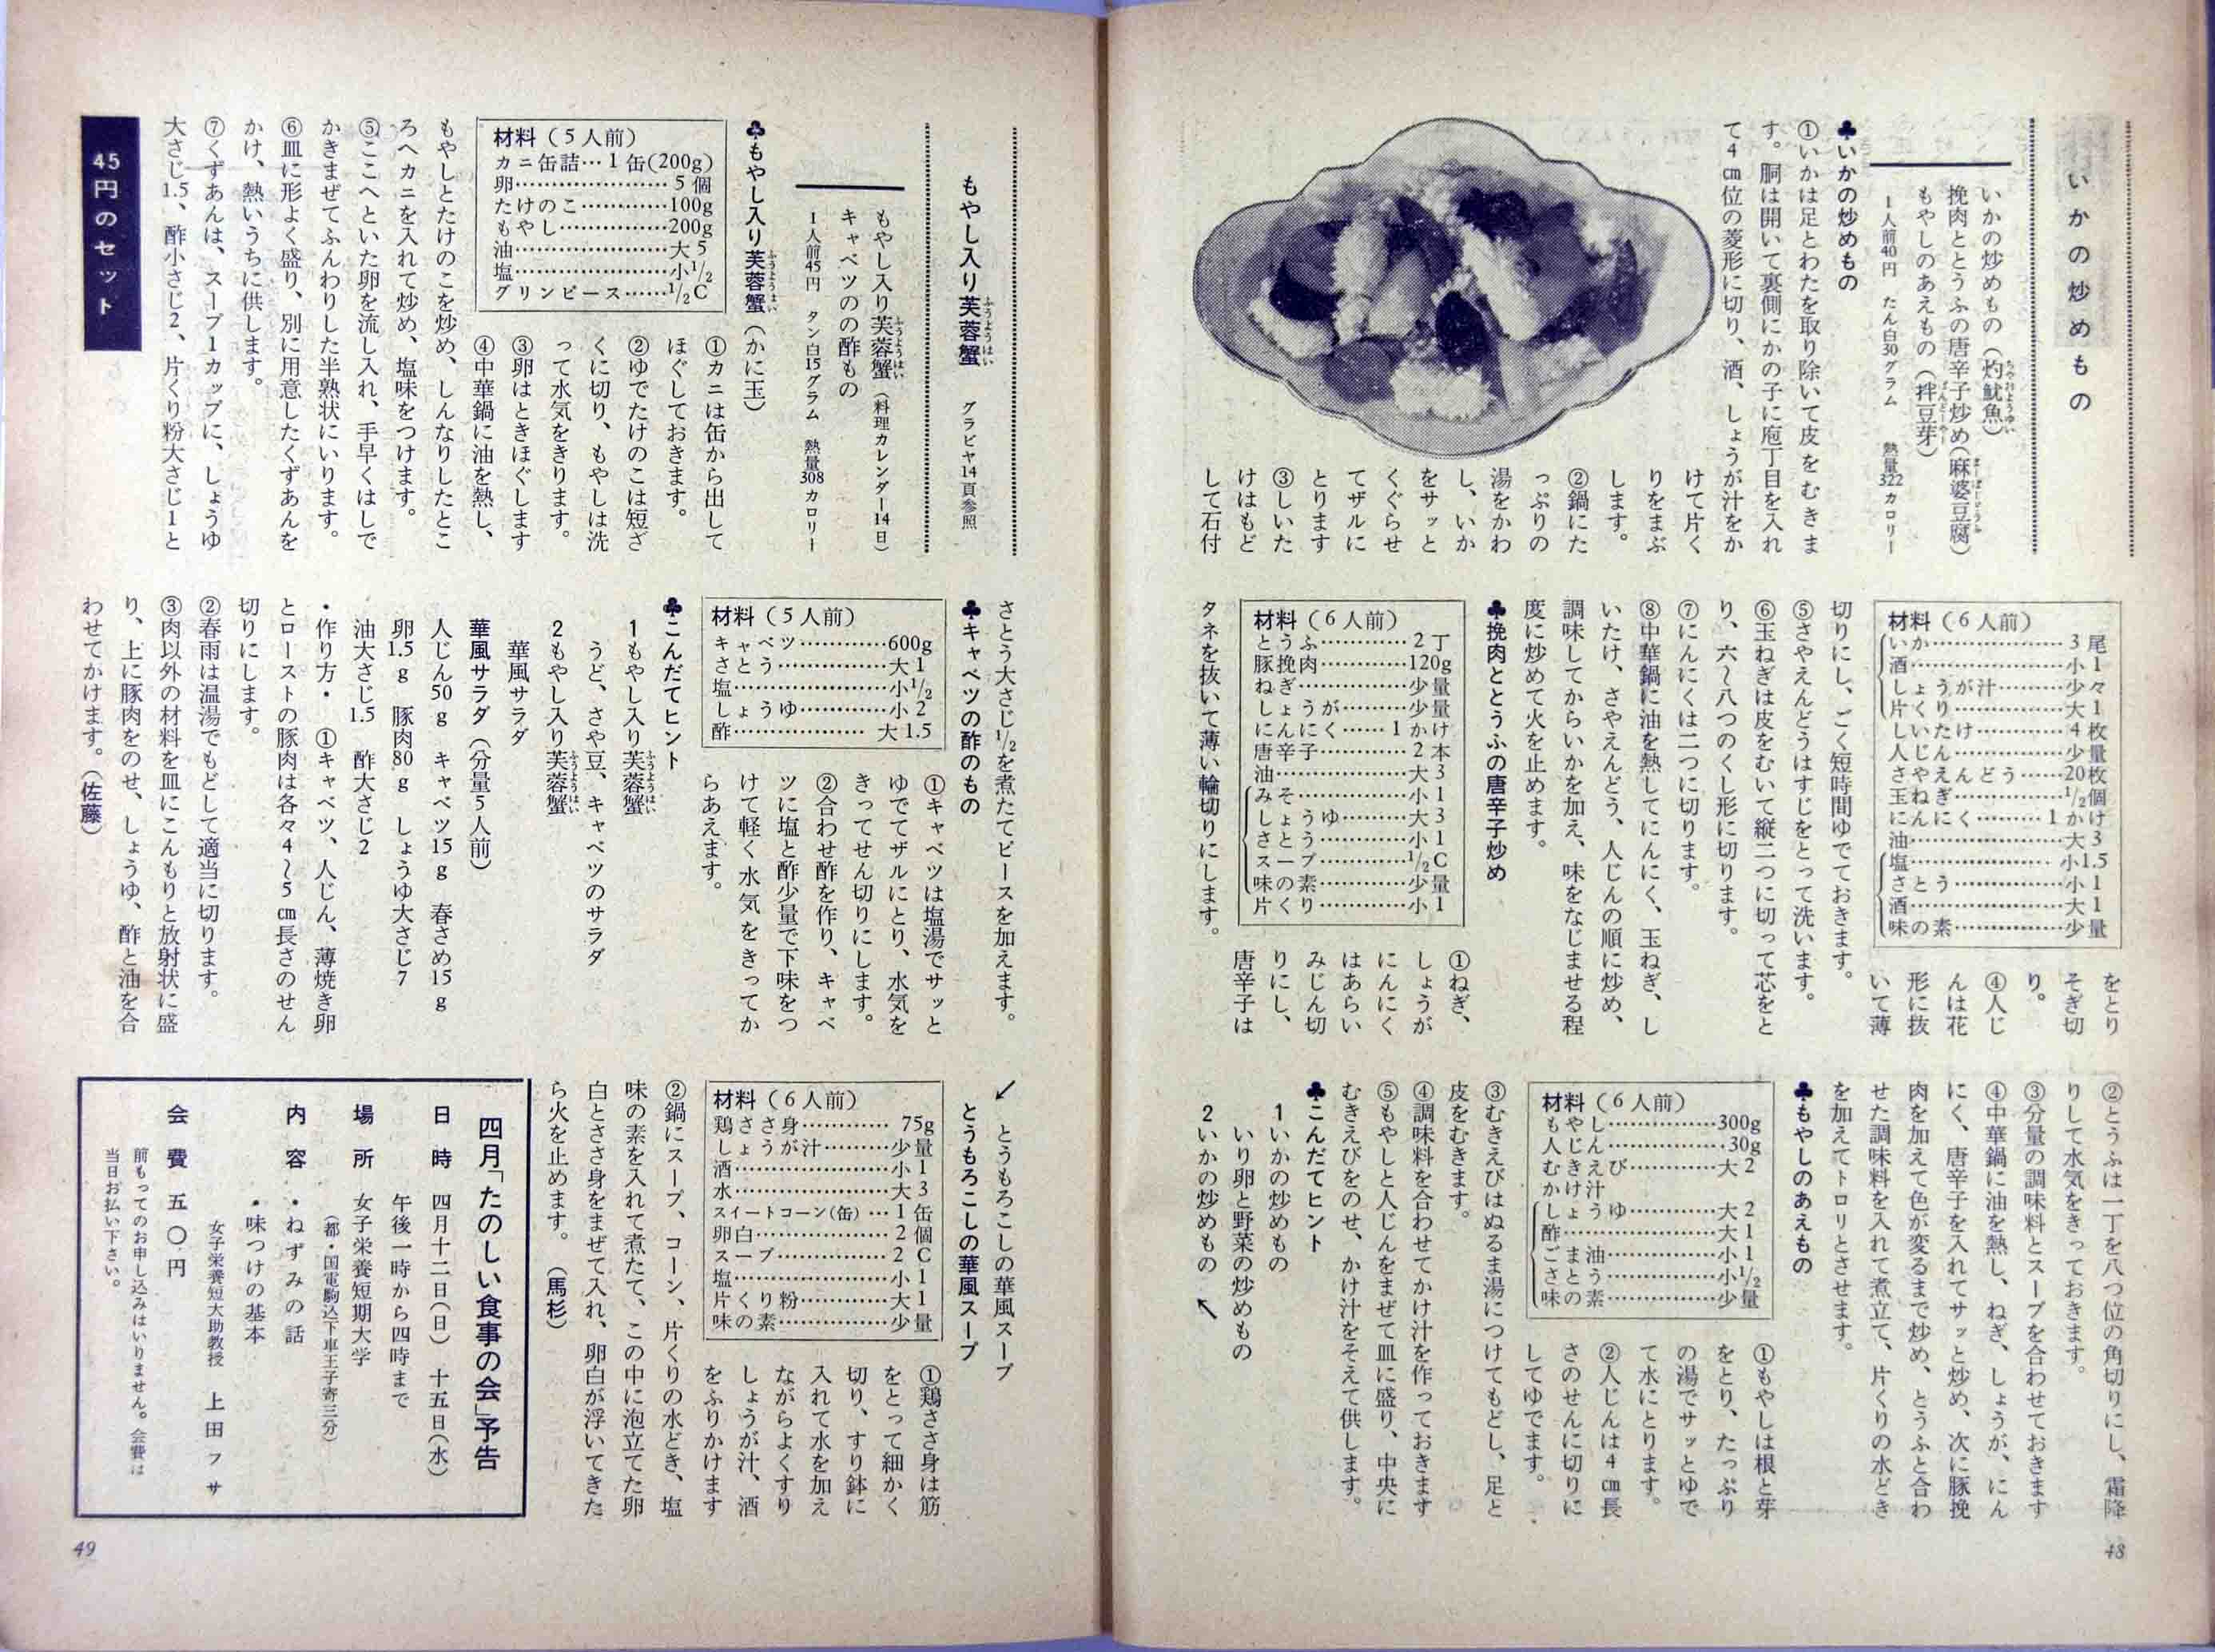 いかの炒めもの
いかの炒めもの（灼魷魚）
挽肉ととうふの唐辛子炒め（麻婆豆腐）
もやしのあえもの（拌豆芽）
1人前40円　たん白30グラム　熱量322カロリー
♣いかの炒めもの
①いかは足とわたを取り除いて皮をむきま
す。胴は開いて裏側にかの子に庖丁目を入れ
て4㎝位の菱形に切り、酒、しょうが汁をか
けて片く
りをまぶ
します。
②鍋にた
っぷりの
湯をかわ
し、いか
をサッと
くぐらせ
てザルに
とります
③しいた
けはもど
して石付
材料（6人前）
いか……3尾
酒……小1
しょうが汁……少々
片くり……大1
しいたけ……4枚
人じん……少量
さやえんどう……20枚
玉ねぎ……1/2個
にんにく……1かけ
油……大3
塩……小1.5
さとう……小1
酒……大1
味の素……少量
をとり
そぎ切
り。
④人じ
んは花
形に抜
いて薄
切りにし、ごく短時間ゆでておきます。
⑤さやえんどうはすじをとって洗います。
⑥玉ねぎは皮をむいて縦二つに切って芯をと
り、六〜八つのくし形に切ります。
⑦にんにくは二つに切ります。
⑧中華鍋に油を熱してにんにく、玉ねぎ、し
いたけ、さやえんどう、人じんの順に炒め、
調味してからいかを加え、味をなじませる程
度に炒めて火を止めます。
♣挽肉ととうふの唐辛子炒め
材料（6人前）
とうふ……2丁
豚挽肉……120g
ねぎ……少量
しょうが……少量
にんにく……1かけ
唐辛子……2本
油……大3
みそ……小1
しょうゆ……大3
さとう……小1
スープ……1/2C
味の素……少量
片くり……小1
①ねぎ、
しょうが
にんにく
はあらい
みじん切
りにし、
唐辛子は
タネを抜いて薄い輪切りにします。
②とうふは一丁を八つ位の角切りにし、霜降
りして水気をきっておきます。
③分量の調味料とスープを合わせておきます
④中華鍋に油を熱し、ねぎ、しょうが、にん
にく、唐辛子を入れてサッと炒め、次に豚挽
肉を加えて色が変るまで炒め、とうふと合わ
せた調味料を入れて煮立て、片くりの水どき
を加えてトロリとさせます。
♣もやしのあえもの
材料（6人前）
もやし……300g
人じん……30g
むきえび……大2
かけ汁
しょうゆ……大2
酢……大1
ごま油……小1
さとう……小1/2
味の素……少量
①もやしは根と芽
をとり、たっぷり
の湯でサッとゆで
て水にとります。
②人じんは4㎝長
さのせんに切りに
してゆでます。
③むきえびはぬるま湯につけてもどし、足と
皮をむきます。
④調味料を合わせてかけ汁を作っておきます
⑤もやしと人じんをまぜて皿に盛り、中央に
むきえびをのせ、かけ汁をそえて供します。
♣こんだてヒント
1いかの炒めもの
いり卵と野菜の炒めもの
2いかの炒めもの　↖
48
もやし入り芙蓉蟹　グラビヤ14頁参照
もやし入り芙蓉蟹（料理カレンダー14日）
キャベツのの酢もの
1人前45円　タン白15グラム　熱量308カロリー
♣もやし入り芙蓉蟹（かに玉）
材料（5人前）
カニ缶詰…1缶(200g)
卵……5個
たけのこ……100g
もやし……200g
油……大5
塩……小1/2
グリンピース……1/2C
①カニは缶から出して
ほぐしておきます。
②ゆでたけのこは短ざ
くに切り、もやしは洗
って水気をきります。
③卵はときほぐします
④中華鍋に油を熱し、
もやしとたけのこを炒め、しんなりしたとこ
ろへカニを入れて炒め、塩味をつけます。
⑤ここへといた卵を流し入れ、手早くはしで
かきまぜてふんわりした半熟状にいります。
⑥皿に形よく盛り、別に用意したくずあんを
かけ、熱いうちに供します。
⑦くずあんは、スープ1カップに、しょうゆ
大さじ1.5、酢小さじ2、片くり粉大さじ1と
45円のセット
さとう大さじ1/2を煮たてピースを加えます。
♣キャベツの酢のもの
材料（5人前）
キャベツ……600g
さとう……大1
塩……小1/2
しょうゆ……小2
酢……大1.5
①キャベツは塩湯でサッと
ゆでてザルにとり、水気を
きってせん切りにします。
②合わせ酢を作り、キャベ
ツに塩と酢少量で下味をつ
けて軽く水気をきってか
らあえます。
♣こんだてヒント
1もやし入り芙蓉蟹
うど、さや豆、キャベツのサラダ
2もやし入り芙蓉蟹
華風サラダ
華風サラダ（分量5人前）
人じん50g　キャベツ15g　春さめ15g
卵1.5g　豚肉80g　しょうゆ大さじ7
油大さじ1.5　酢大さじ2
・作り方・　①キャベツ、人じん、薄焼き卵
とローストの豚肉は各々4〜5㎝長さのせん
切りにします。
②春雨は温湯でもどして適当に切ります。
③肉以外の材料を皿にこんもりと放射状に盛
り、上に豚肉をのせ、しょうゆ、酢と油を合
わせてかけます。（佐藤）
↙　とうもろこしの華風スープ
とうもろこしの華風スープ
材料（6人前）
鶏ささ身……75g
しょうが汁……少量
酒……小1
水……大3
スイートコーン(缶)…1缶
卵白……2個
スープ……2C
塩……小1
片くり粉……大1
味の素……少量
①鶏ささ身は筋
をとって細かく
切り、すり鉢に
入れて水を加え
ながらよくすり
しょうが汁、酒
をふりかけます
②鍋にスープ、コーン、片くりの水どき、塩
味の素を入れて煮たて、この中に泡立てた卵
白とささ身をまぜて入れ、卵白が浮いてきた
ら火を止めます。（馬杉）
四月「たのしい食事の会」予告
日時　四月十二日(日)　十五日(水)
午後一時から四時まで
場所　女子栄養短期大学
（都・国電駒込下車王子寄三分）
内容　・ねずみの話
・味つけの基本
女子栄養短大助教授　上田フサ
会費　五〇円
前もってのお申し込みはいりません。会費は
当日お払い下さい。
49